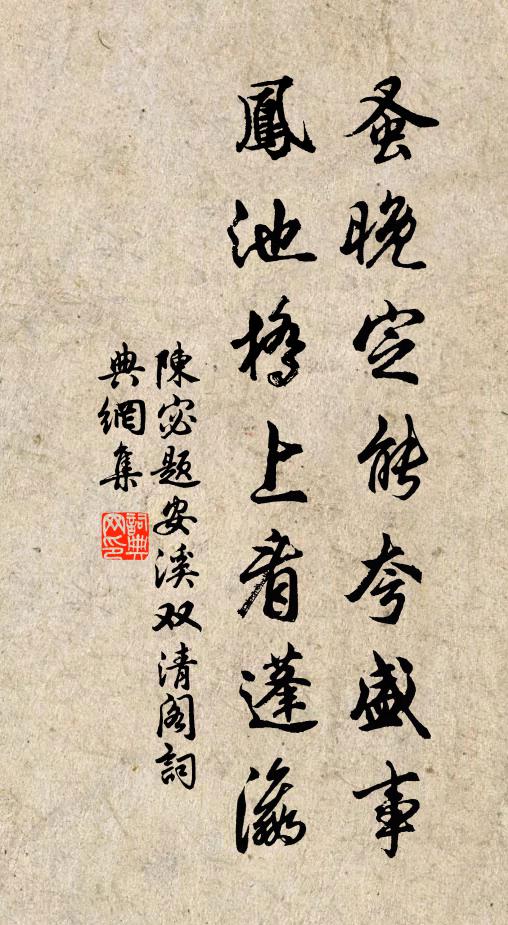 蚤晚定能夸盛事
鳳池橋上看蓬瀛
陳宓題安溪双清阁詞
典網集
詞典网印